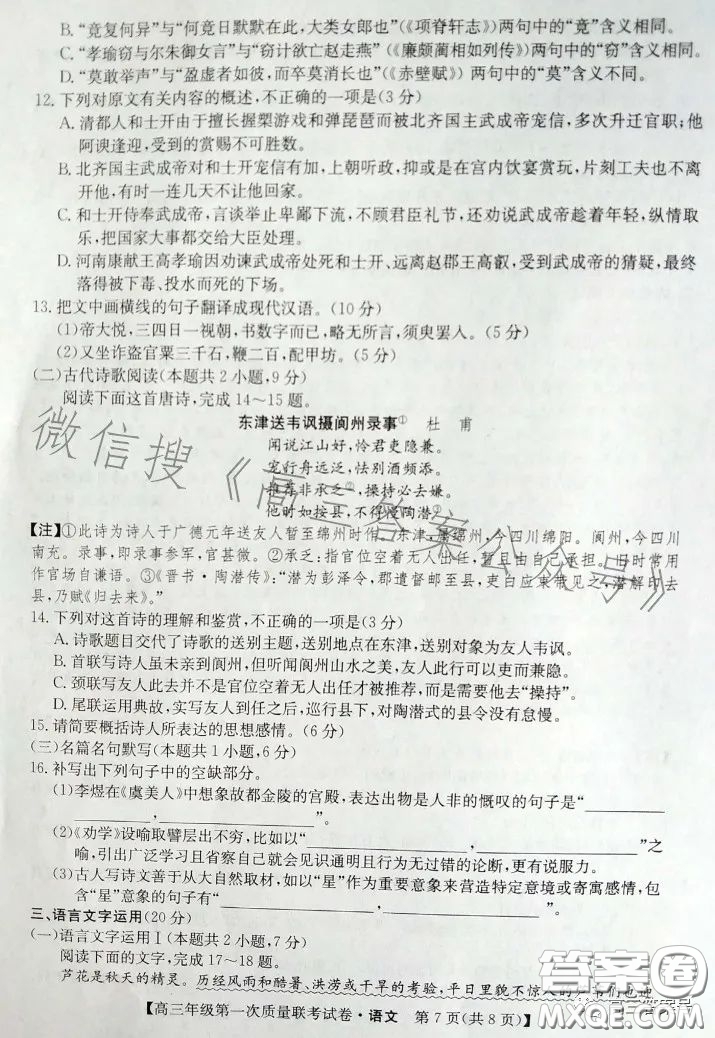 B.“竟复何异”与“何竟日默默在此，大类女郎也”（《项脊轩志》）两句中的“竟”含义相同。
C.“孝瑜窃与尔朱御女言”与“窃计欲亡赵走燕”（《廉颇蔺相如列传》）两句中的“窃”含义相同。
D.“莫敢举声”与“盈虚者如彼，而卒莫消长也”（《赤壁赋》）两句中的“莫”含义不同。
12.下列对原文有关内容的概述，不正确的一项是(3分)
A.清都人和士开由于擅长握槊游戏和弹琵琶而被北齐国主武成帝宠信，多次升迁官职；他
阿谀逢迎，受到的赏赐不可胜数。
B.北齐国主武成帝对和士开宠信有加，上朝听政，抑或是在宫内饮宴赏玩，片刻工夫也不离
开他，有时一连几天不让他回家。
C.和士开侍奉武成帝，言谈举止卑鄙下流，不顾君臣礼节，还劝说武成帝趁着年轻，纵情取
乐，把国家大事都交给大臣处理。
D.河南康献王高孝瑜因劝谏武成帝处死和士开、远离赵郡王高叡，受到武成帝的猜疑，最终
落得被下毒、投水而死的下场。
13.把文中画横线的句子翻译成现代汉语。(10分)
(1)帝大悦，三四日一视朝，书数字而已，略无所言，须臾罢入。(5分)
(2)又坐诈盗官粟三千石，鞭二百，配甲坊。(5分)
(二)古代诗歌阅读(本题共2小题，9分)
阅读下面这首唐诗，完成14～15题。
东津送韦讽摄阆州录事① 杜甫
闻说江山好，怜君吏隐兼。
宠行舟远泛，怯别酒频添。
推荐非承乏②，操持必去嫌。
他时如按县，不得慢陶潜③。
【注】①此诗为诗人于广德元年送友人暂至绵州时作。东津，属绵州，今四川绵阳。阆州，今四川
南充。录事，即录事参军，官甚微。②承乏：指官位空着无人出任，暂且由自己承担。旧时常用
作官场自谦语。③《晋书·陶潜传》：“潜为彭泽令，郡遣督邮至县，吏白应束带见之，潜解印去
县，乃赋《归去来》。”
14.下列对这首诗的理解和鉴赏，不正确的一项是(3分)
A.诗歌题目交代了诗歌的送别主题，送别地点在东津，送别对象为友人韦讽。
B.首联写诗人虽未亲到阆州，但听闻阆州山水之美，友人此行可以为吏而兼隐。
C.颈联写友人此去并不是官位空着无人出任才被推荐，而是需要他去“操持”。
D.尾联运用典故，实写友人到任之后，巡行县下，对陶潜式的县令没有怠慢。
15.请简要概括诗人所表达的思想感情。(6分)
(三)名篇名句默写(本题共1小题，6分)
16.补写出下列句子中的空缺部分。
(1)李煜在《虞美人》中想象故都金陵的宫殿，表达出物是人非的慨叹的句子是“
”。
(2)《劝学》设喻取譬层出不穷，比如以“ ， ”之
喻，引出广泛学习且省察自己就会见识通明且行为无过错的论断，更有说服力。
(3)古人写诗文善于从大自然取材，如以“星”作为重要意象来营造特定意境或寄寓感情，包
含“星”意象的句子有“ ， ”。
三、语言文字运用(20分)
(一)语言文字运用Ⅰ(本题共2小题，7分)
阅读下面的文字，完成17～18题。
芦花是秋天的精灵。历经风雨和酷暑、洪涝或干旱的考验，平日里貌不惊人的
【高三年级第一次质量联考试卷·语文 第7页(共8页)】
微信搜《高三答案公众号》
答案卷
MXQE.COM